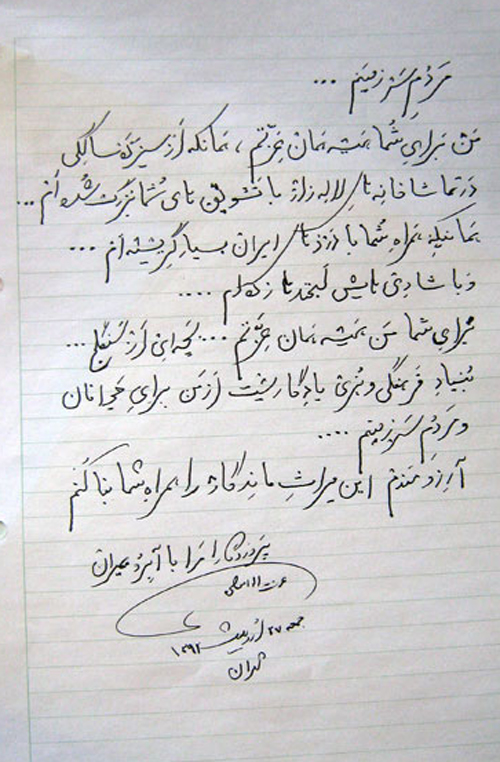 مَردُمِ سَرزمینم ...
مَن بَرایِ شُما همیشه همان عِزّتم ، همانکه اَز سیزده سالگی
دَر تماشاخانه هایِ لاله زار با تشویق های شُما بزرگ شُده اَم ...
همانیکه همراهِ شُما با دَردهایِ ایران بسیار گِریسته اَم ...
وَ با شادی هایش لَبخندها زده ام ....
بَرایِ شما مَن همیشه همان عِزّتم ... بَچه ای اَز سَنگلج ...
بُنیادِ فَرهنگی و هُنری یادِگاریست اَز مَن برایِ جَوانان
و مَردُمِ سَرزمینم ....
آرِزومَندم این میراثِ ماندِگار را همراهِ شما بنا کُنم
پَروردگارا مَرا با آبِرو بمیران
عزت الله انتظامی
جمعه ۲۷ اُردیبهشت ۱۳۹۲
تهران